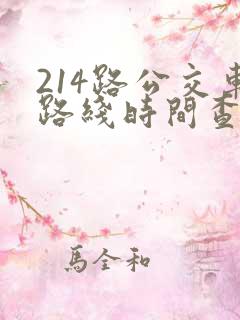 214路公交車
路綫時間查
馬全和